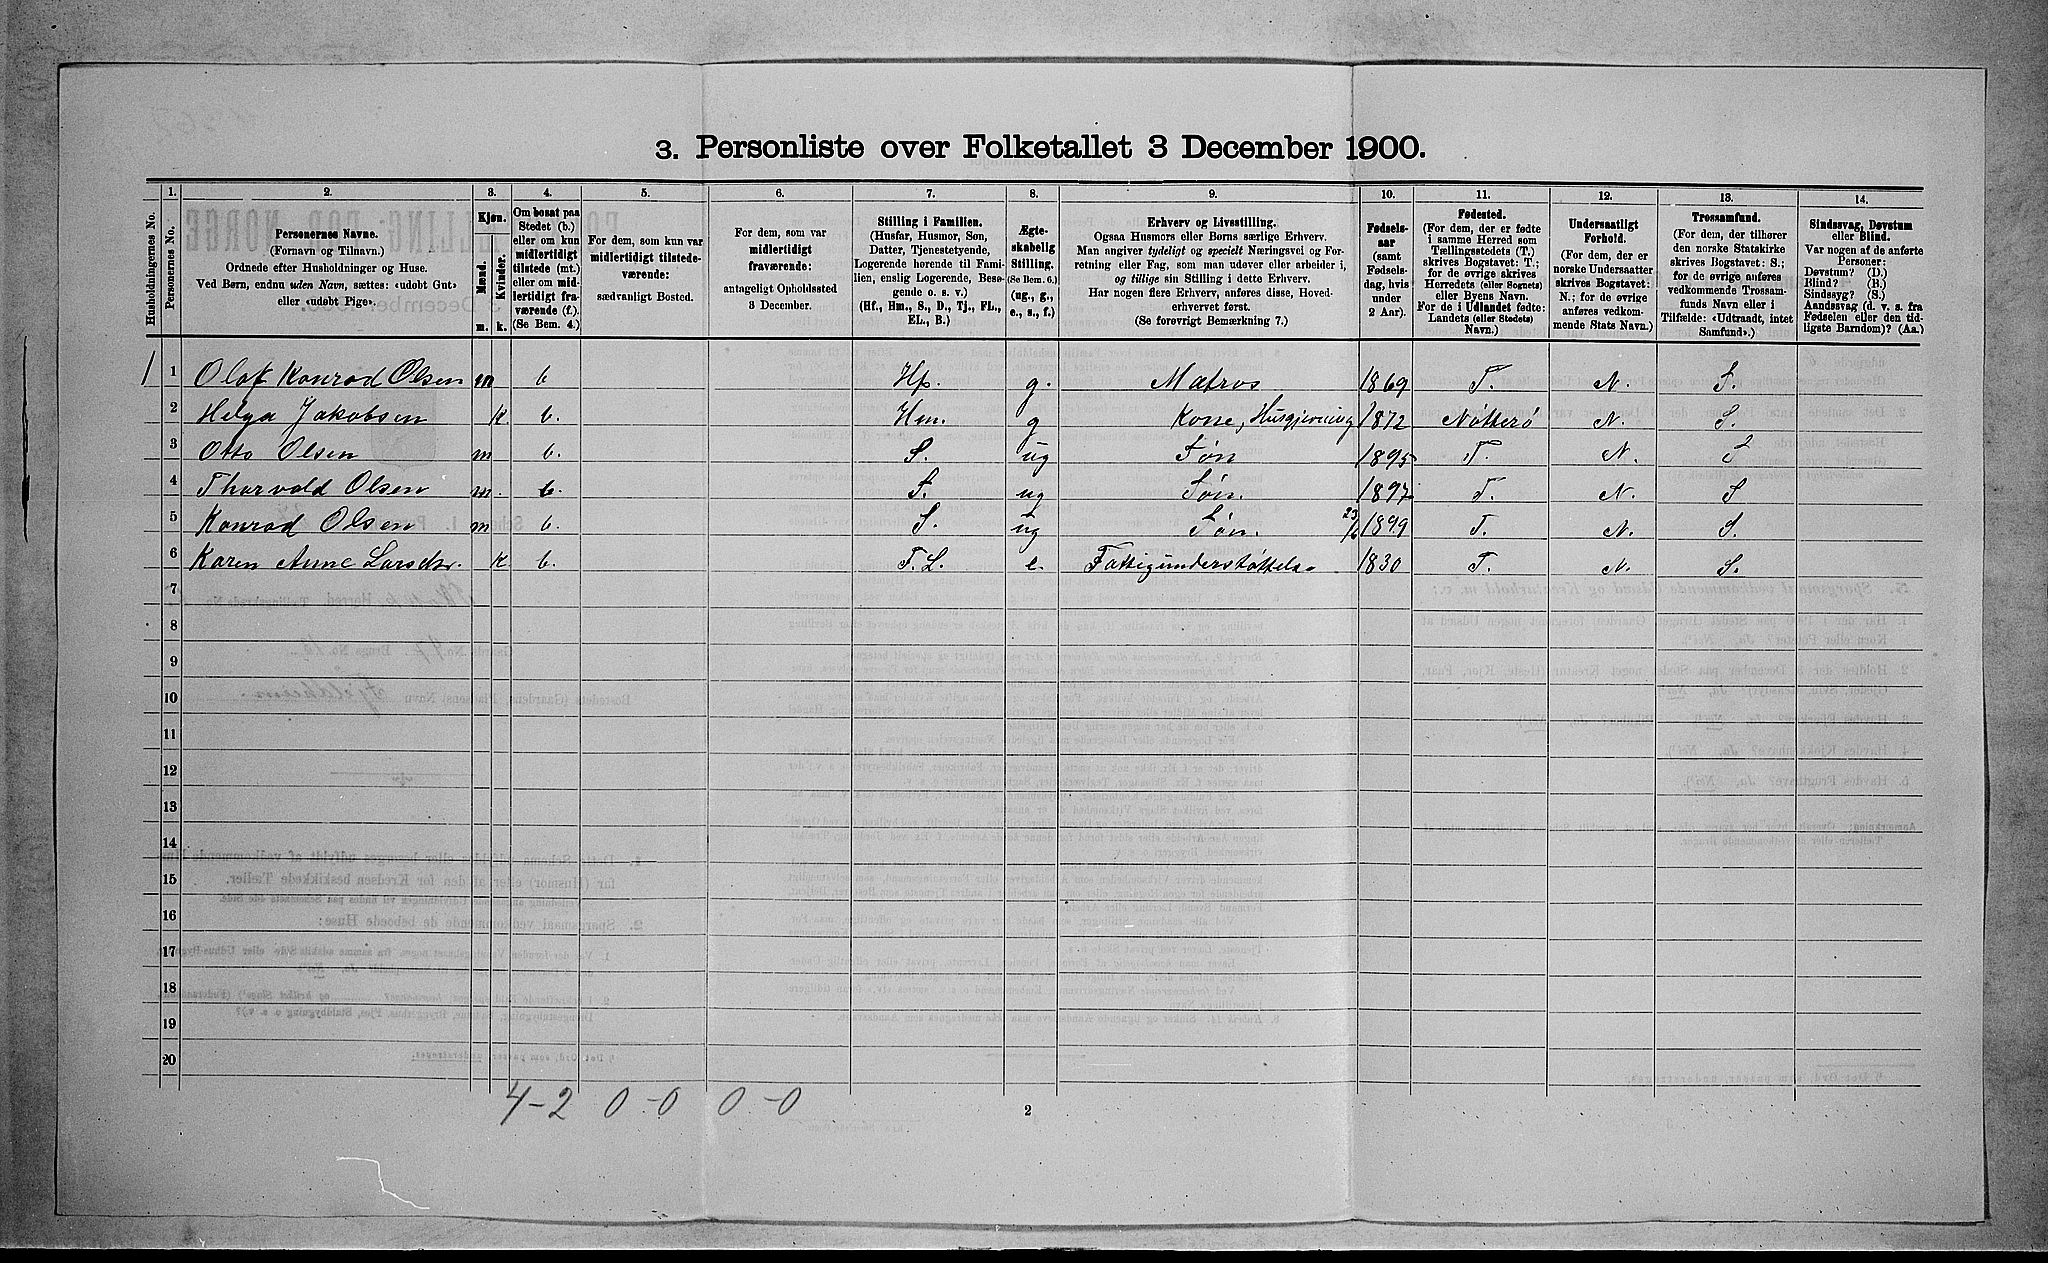 3. Personliste over Folketallet 3 December 1900.
1. 2. 3. 4. 5. 6. 7. 8. 9. 10. 11. 12. 13. 14.
Husholdningernes No.
Personernes No.
Personernes Navne.
(Fornavn og Tilnavn.)
Ordnede efter Husholdninger og Huse.
Ved Børn, endnu uden Navn, sættes: «udøbt Gut»
eller «udøbt Pige».
Kjøn.
Mænd.
Kvinder.
m. k.
Om bosat paa
Stedet (b.)
eller om kun
midlertidigt
tilstede (mt.)
eller om mid-
lertidigt fra-
værende (f.).
(Se Bem. 4.)
For dem, som kun var
midlertidigt tilstede-
værende:
sædvanligt Bosted.
For dem, som var
midlertidigt
fraværende:
antageligt Opholdssted
3 December.
Stilling i Familien.
(Husfar, Husmor, Søn,
Datter, Tjenestetyende,
Logerende hørende til Fami-
lien, enslig Logerende, Besø-
gende o. s. v.)
(Hf., Hm., S., D., Tj., FL.,
EL., B.)
Ægte-
skabelig
Stilling.
(Se Bem. 6.)
(ug., g.,
e., s., f.)
Erhverv og Livsstilling.
Ogsaa Husmors eller Børns særlige Erhverv.
Man angiver tydeligt og specielt Næringsvei og For-
retning eller Fag, som man udøver eller arbeider i,
og tillige sin Stilling i dette Erhverv.
Har nogen flere Erhverv, anføres disse, Hoved-
erhvervet først.
(Se forøvrigt Bemærkning 7.)
Fødsels-
aar
(samt
Fødsels-
dag, hvis
under
2 Aar).
Fødested.
(For dem, der er fødte
i samme Herred som
Tællingsstedets (T.)
skrives Bogstavet: T.;
for de øvrige skrives
Herredets (eller Sognets)
eller Byens Navn.
For de i Udlandet fødte:
Landets (eller Stedets)
Navn.)
Undersaatligt
Forhold.
(For dem, der er
norske Undersaatter
skrives Bogstavet:
N.; for de øvrige
anføres vedkom-
mende Stats Navn.)
Trossamfund.
(For dem, der tilhører
den norske Statskirke
skrives Bogstavet: S.;
for de øvrige anføres
vedkommende Trossam-
funds Navn eller i
Tilfælde: «Udtraadt, intet
Samfund».)
Sindssvag, Døvstum
eller Blind.
Var nogen af de anførte
Personer:
Døvstum? (D.)
Blind? (B.)
Sindssyg? (S.)
Aandssvag (d. v. s. fra
Fødselen eller den tid-
ligste Barndom)? (Aa.)
1 1 Olaf Konrad Olsen m b Hf. g. Matros 1869 T. N. S.
2 Helga Jakobsen k. b. Hm. g Kone, Husgjerning 1872 Nøtterø N. S.
3 Otto Olsen m b. S. ug Søn 1895 T. N. S
4 Thorvald Olsen m. b. S. ug Søn. 1897 T. N. S
5 Konrad Olsen m b. S. ug Søn. 23/6 1899 T. N. S.
6 Karen Anne Larsdtr. k b. F.L. e. Fattigunderstøttelse 1830 T. N. S.
7
8
9
10
11
12
13
14
15
16
17
18
19
20
4-2 0-0 0-0
2